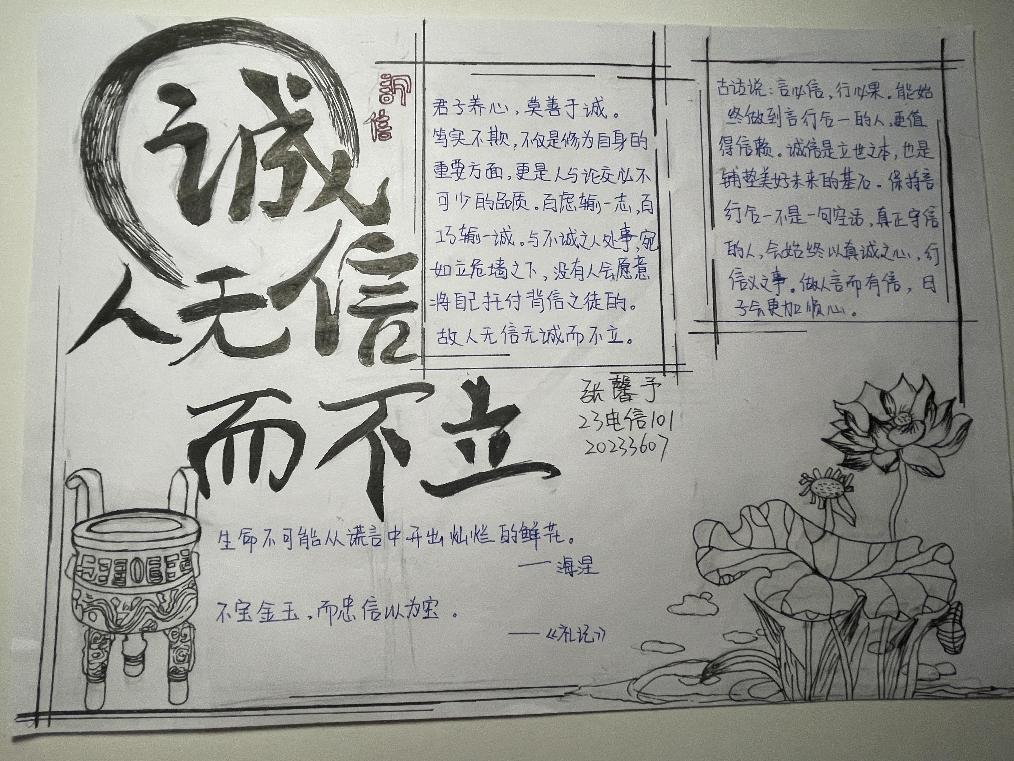 诚信
人无信
而不立
君子养心，莫善于诚。
笃实不欺，不仅是修为自身的
重要方面，更是人与论交必不
可少的品质。百虑输一志，百
巧输一诚。与不诚之人处事，宛
如立危墙之下，没有人会愿意
将自己托付背信之徒的。
故人无信无诚而不立。
古话说：言必信，行必果。能始
终做到言行合一的人，更值
得信赖。诚信是立世之本，也是
铺垫美好未来的基石。保持言
行合一不是一句空话，真正守信
的人，会始终以真诚之心，行
信义之事。做人言而有信，日
子会更加顺心。
张馨予
23电信101
20233607
生命不可能从谎言中开出灿烂的鲜花。
——海涅
不宝金玉，而忠信以为宝。
——《礼记》